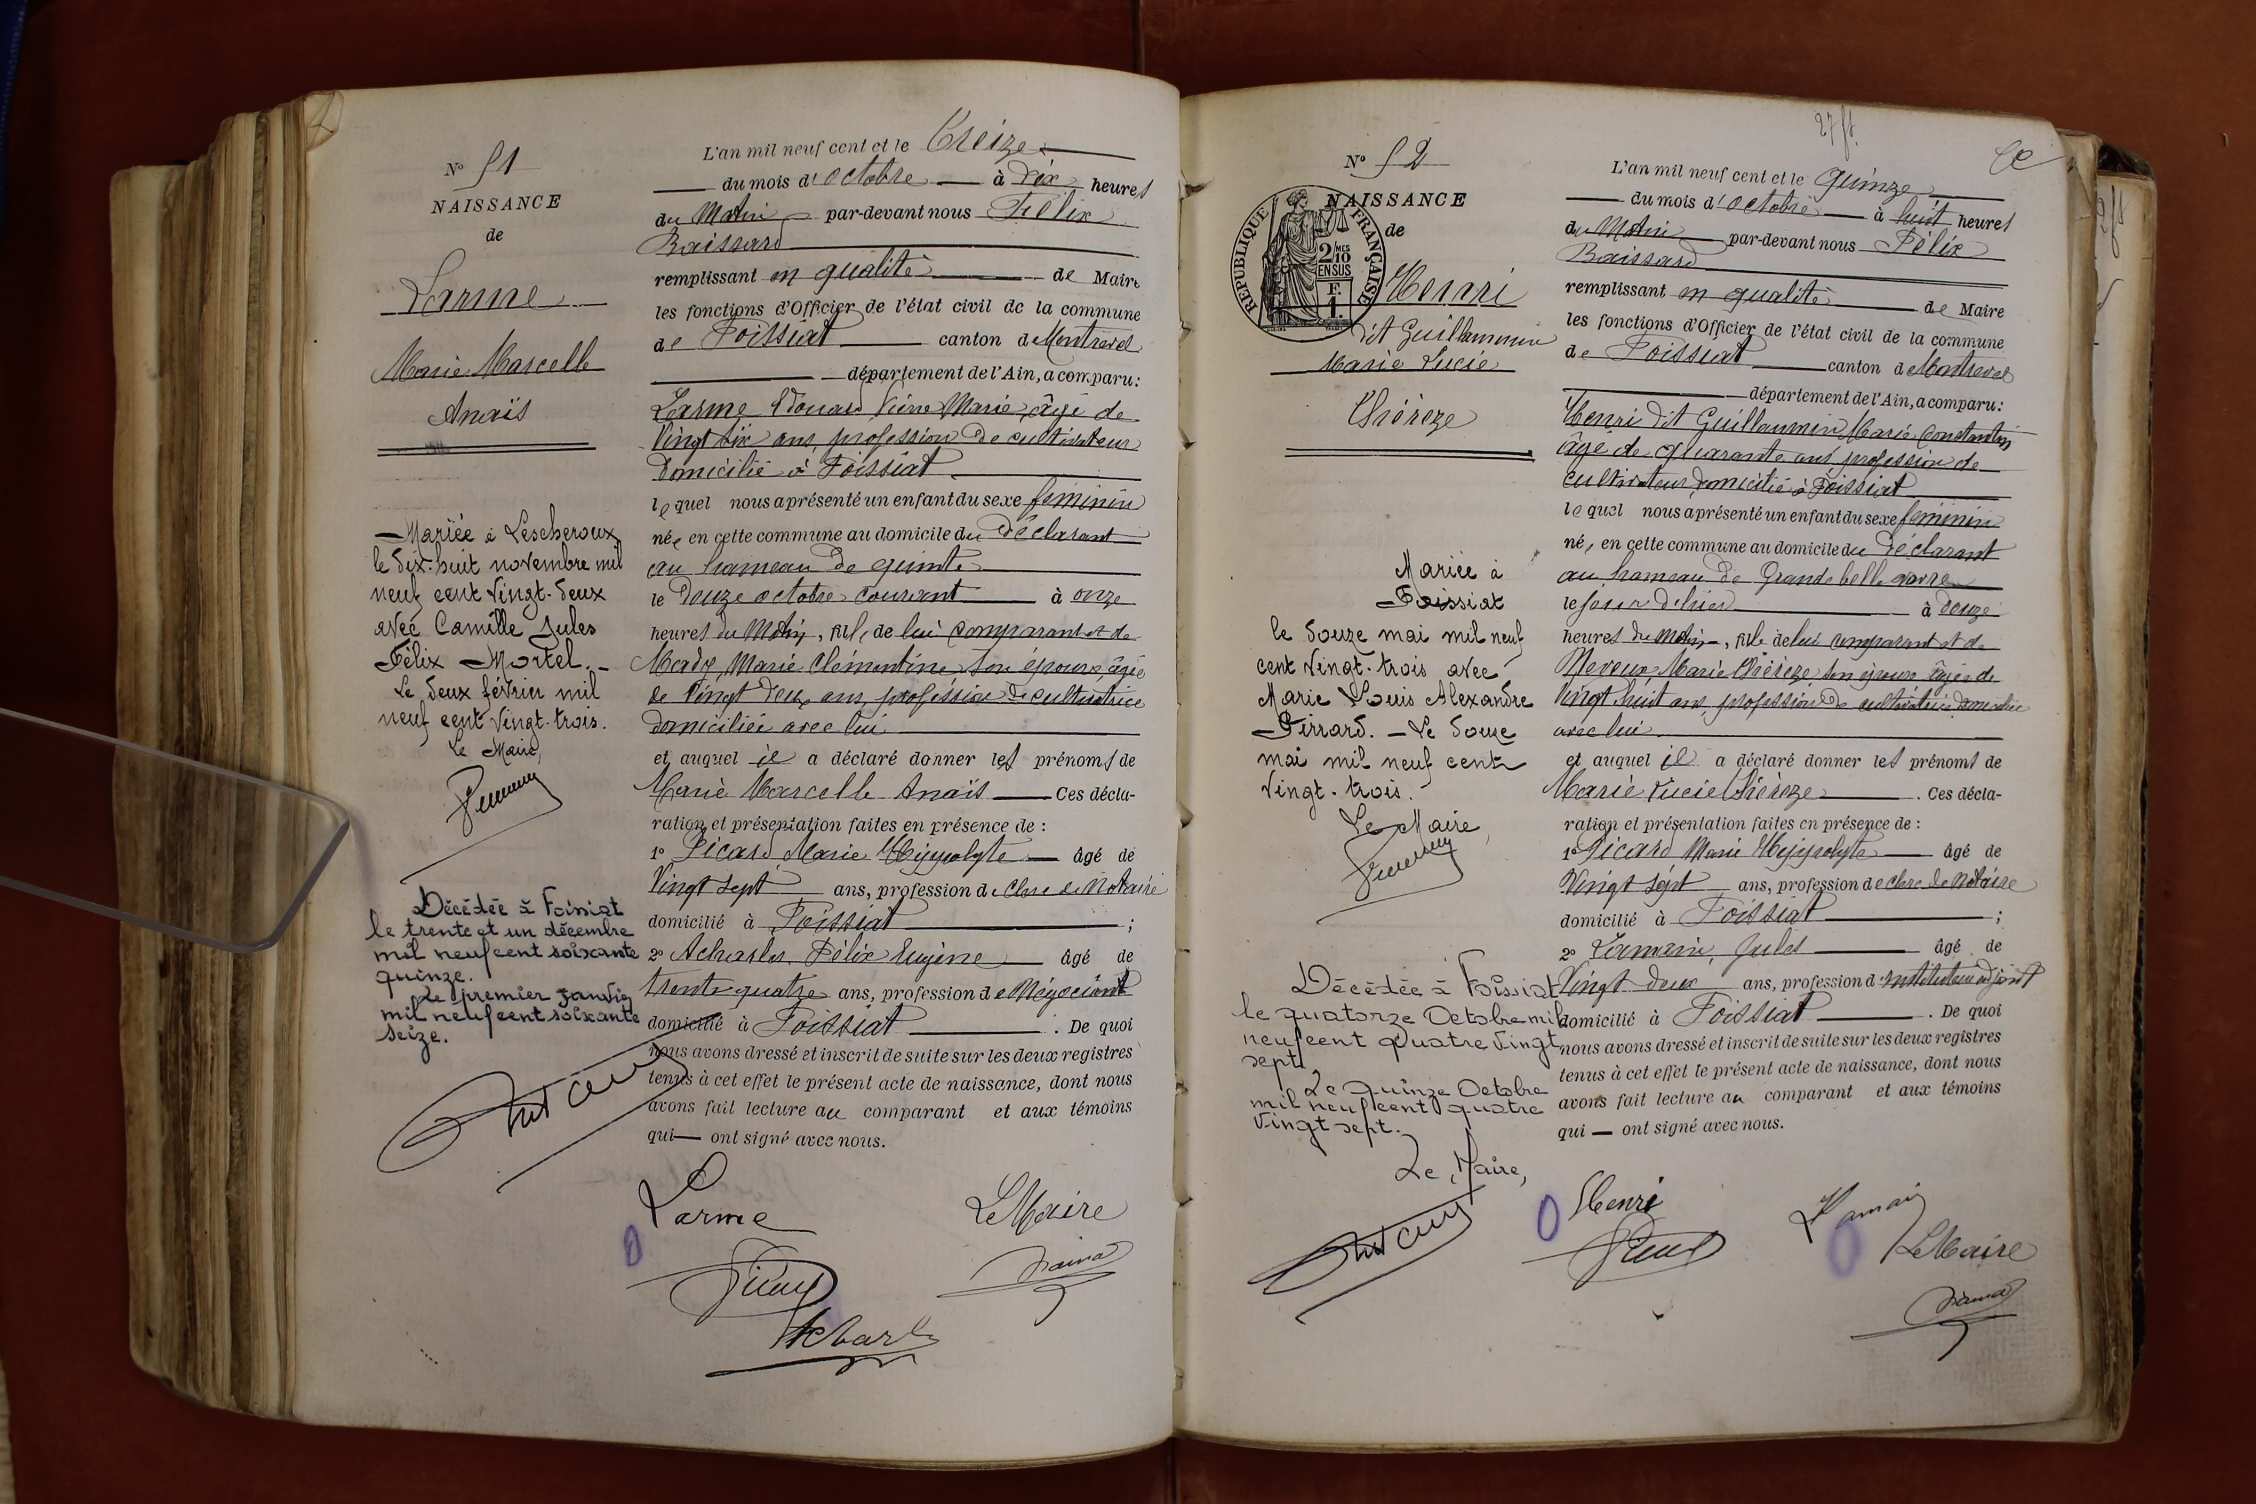 N° 51
NAISSANCE
de
Larme
Marie Marcelle
Anaïs
Mariée à Lescheroux
le dix-huit novembre mil
neuf cent vingt-deux
avec Camille Jules
Félix Mortel. –
Le deux février mil
neuf cent vingt-trois.
Le Maire,
Décédée à Foissiat
le trente et un décembre
mil neuf cent soixante
quinze.
Le premier janvier
mil neuf cent soixante
seize.
L'an mil neuf cent et le Treize
du mois d'octobre à dix heures
du Matin par-devant nous Félix
Raissard
remplissant en qualité de Maire
les fonctions d'Officier de l'état civil de la commune
de Foissiat canton de Montrevel
département de l'Ain, a comparu:
Larme Edouard Pierre Marie, âgé de
vingt six ans, profession de cultivateur
domicilié à Foissiat
lequel nous a présenté un enfant du sexe féminin
née en cette commune au domicile du déclarant
au hameau de quinte
le douze octobre courant à onze
heures du Matin, fille de lui comparant et de
Mady, Marie Clémentine, son épouse, âgée
de vingt deux ans, profession de cultivatrice
domiciliée avec lui
et auquel il a déclaré donner les prénoms de
Marie Marcelle Anaïs Ces décla-
ration et présentation faites en présence de :
1° Picard Marie Hyppolyte âgé de
vingt sept ans, profession de clerc de Notaire
domicilié à Foissiat ;
2° Acharles Félix Eugène âgé de
trente quatre ans, profession de Négociant
domicilié à Foissiat . De quoi
nous avons dressé et inscrit de suite sur les deux registres
tenus à cet effet le présent acte de naissance, dont nous
avons fait lecture au comparant et aux témoins
qui — ont signé avec nous.
Larme
Le Maire
27 ft
N° 52
NAISSANCE
de
REPUBLIQUE FRANÇAISE
2/10 MES
EN SUS
F.
1.
Henri
dit Guillaumin
Marie Lucie
Thérèze
Mariée à
Foissiat
le douze mai mil neuf
cent vingt-trois avec
Marie Louis Alexandre
Pirrard. – Le douze
mai mil neuf cent
vingt-trois.
Le Maire,
Décédée à Foissiat
le quatorze Octobre mil
neuf cent quatre vingt
sept
Le quinze Octobre
mil neuf cent quatre
vingt sept.
Le Maire,
L'an mil neuf cent et le quinze
du mois d'octobre à huit heures
du Matin par-devant nous Félix
Raissard
remplissant en qualité de Maire
les fonctions d'Officier de l'état civil de la commune
de Foissiat canton de Montrevel
département de l'Ain, a comparu:
Henri dit Guillaumin Marie Constantin
âgé de quarante ans, profession de
cultivateur domicilié à Foissiat
lequel nous a présenté un enfant du sexe féminin
née en cette commune au domicile du déclarant
au hameau de Grande belle
le jour d'hier à douze
heures du Matin, fille de lui comparant et de
Neveux Marie Thérèze son épouse âgée de
vingt huit ans, profession de cultivatrice domiciliée
avec lui
et auquel il a déclaré donner les prénoms de
Marie Lucie Thérèze . Ces décla-
ration et présentation faites en présence de :
1° Picard Marie Hyppolyte âgé de
vingt sept ans, profession de clerc de Notaire
domicilié à Foissiat ;
2° Jules âgé de
vingt deux ans, profession d'instituteur adjoint
domicilié à Foissiat . De quoi
nous avons dressé et inscrit de suite sur les deux registres
tenus à cet effet le présent acte de naissance, dont nous
avons fait lecture au comparant et aux témoins
qui — ont signé avec nous.
Henri
Le Maire